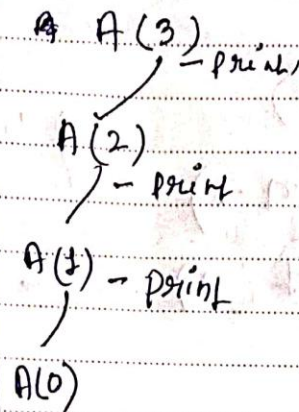 A(3)
- print
A(2)
- print
A(1) - print
A(0)